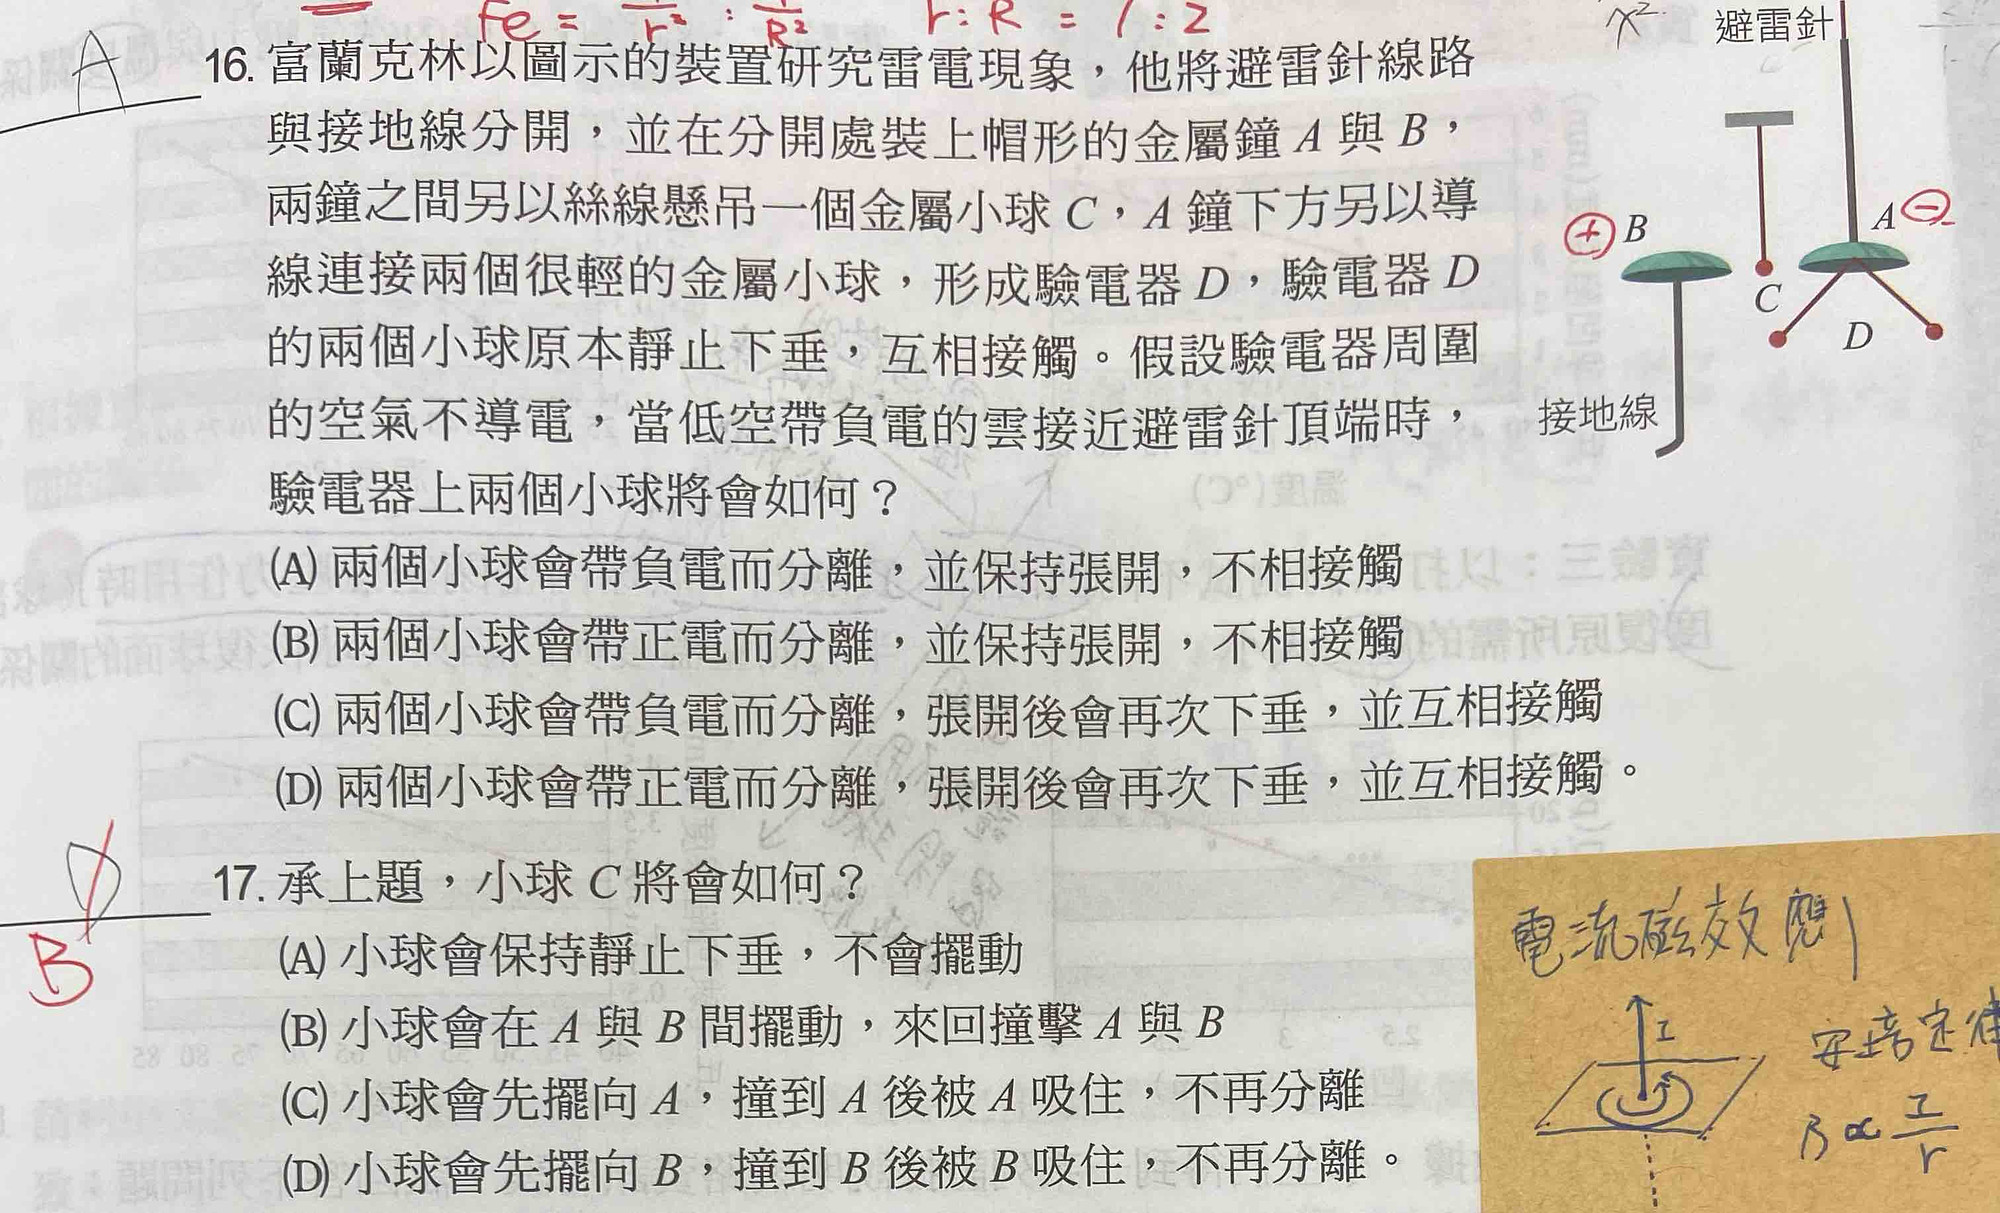 Fe = 1/r² : 1/R²  r : R = 1 : 2
避雷針
A
16. 富蘭克林以圖示的裝置研究雷電現象，他將避雷針線路
與接地線分開，並在分開處裝上帽形的金屬鐘 A 與 B，
兩鐘之間另以絲線懸吊一個金屬小球 C，A 鐘下方另以導
線連接兩個很輕的金屬小球，形成驗電器 D，驗電器 D
的兩個小球原本靜止下垂，互相接觸。假設驗電器周圍
的空氣不導電，當低空帶負電的雲接近避雷針頂端時，
驗電器上兩個小球將會如何？
(A) 兩個小球會帶負電而分離，並保持張開，不相接觸
(B) 兩個小球會帶正電而分離，並保持張開，不相接觸
(C) 兩個小球會帶負電而分離，張開後會再次下垂，並互相接觸
(D) 兩個小球會帶正電而分離，張開後會再次下垂，並互相接觸。
⊕ B
A ⊖
C
D
接地線
B
17. 承上題，小球 C 將會如何？
(A) 小球會保持靜止下垂，不會擺動
(B) 小球會在 A 與 B 間擺動，來回撞擊 A 與 B
(C) 小球會先擺向 A，撞到 A 後被 A 吸住，不再分離
(D) 小球會先擺向 B，撞到 B 後被 B 吸住，不再分離。
電流磁效應
I
安培定律
B ∝ I/r